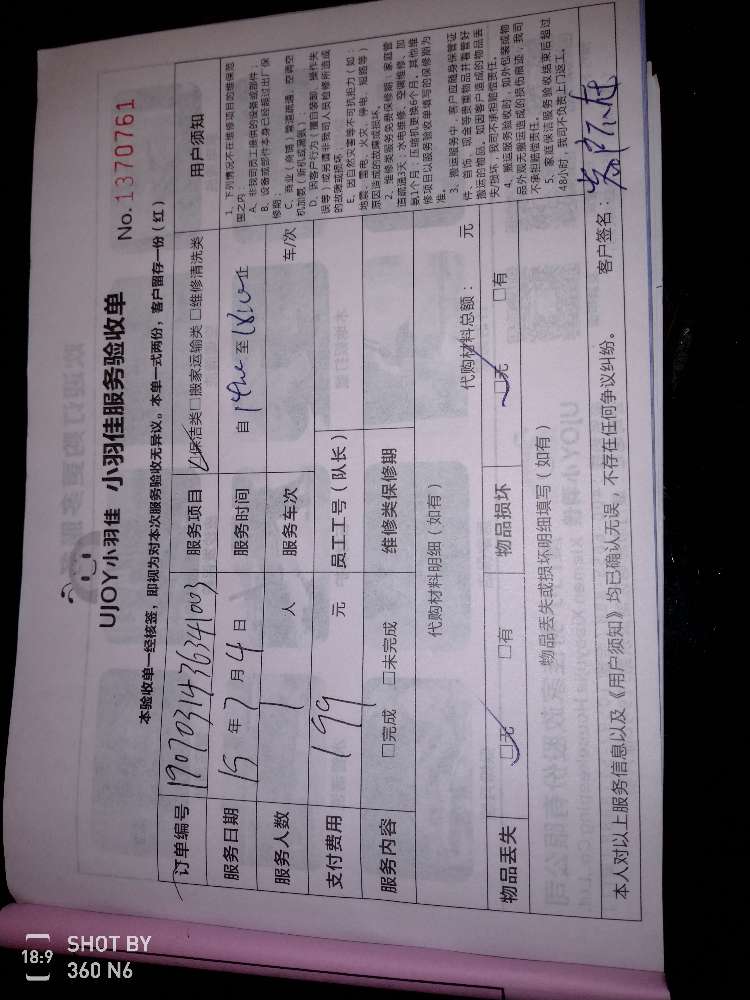 UJOY小羽佳 小羽佳服务验收单
No. 1370761
本验收单一经核签，即视为对本次服务验收无异议。本单一式两份，客户留存一份（红）
订单编号 190703143634 1003
服务项目 ☑保洁类□搬家运输类 □维修清洗类
用户须知
服务日期 15 年 7 月 4 日
服务时间 自 14:00 至 18:00 止
服务人数 1 人
服务车次 车/次
支付费用 199 元
员工工号（队长）
服务内容 □完成 □未完成
维修类保修期
代购材料明细（如有）
代购材料总额： 元
物品丢失 ☑无 □有
物品损坏 ☑无 □有
物品丢失或损坏明细填写（如有）
1. 下列情况不在维修项目的维保范
围之内：
A. 非我司员工提供的设备或部件；
B. 设备或部件本身已经超过出厂保
修期；
C. 商业（商铺，管道疏通，空调空
机加氨（新机或漏氨）；
D. 因客户行为（擅自装卸、操作失
误等）或另请非我司人员检修所造成
的故障或损坏；
E. 因自然灾害等不可抗拒力（如：
地震、雷电、火灾、停电、短路等）
原因造成的故障或损坏。
2. 维修类服务免费保修期：家庭管
道疏通3天，水电维修、空调维修、加
氨1个月，压缩机更换6个月，其他维
修项目以服务验收单填写的保修期为
准。
3. 搬运服务中，客户应随身保管证
件、首饰、现金等贵重物品并看管好
搬运的物品。如因客户造成的物品丢
失/损坏，我司不承担赔偿责任。
4. 搬运服务验收时，如外包装或物
品外观无搬运造成的损伤痕迹，我司
不承担赔偿责任。
5. 家庭保洁服务验收结束后超过
48小时，我司不负责上门返工。
本人对以上服务信息以及《用户须知》均已确认无误，不存在任何争议纠纷。 客户签名：
18:9 SHOT BY
360 N6